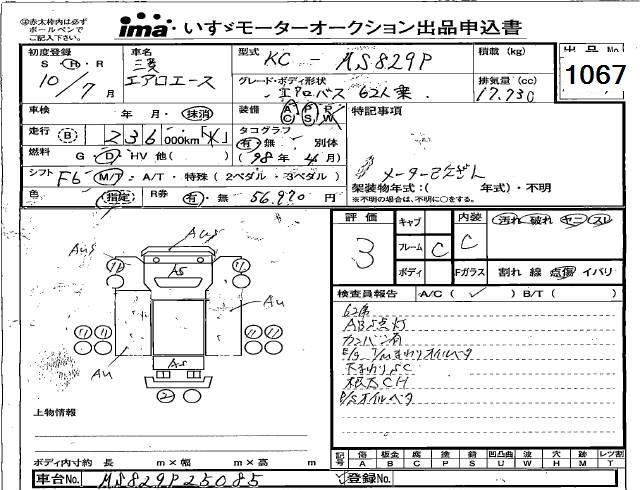 ※赤太枠内は必ず
ボールペンで
ご記入下さい。
ima いすゞモーターオークション出品申込書
初度登録
S・H・R
10/7月
車名
三菱
エアロエース
型式
KC-MS829P
積載(kg)
出品No.
1067
グレード・ボディ形状
エアロバス 62人乗
排気量(cc)
17.730
車検
年 月・抹消
装備
A P P
C S W
特記事項
メーター改ざん
走行
B 236 000km
タコグラフ
有・無 別体
(98年4月)
燃料
G D・HV 他( )
架装物年式:( 年式)・不明
※不明の場合は、不明に○をする。
シフト
F6 M/T・A/T・特殊(2ペダル・3ペダル)
色
指定
R券 有・無 56,970円
評価
3
キャブ
フレーム C
ボディ
内装 C
汚れ 破れ ヤニ・スレ
Fガラス
割れ 線 点傷 イバリ
検査員報告 A/C( ✓ ) B/T( )
62席
ABS点灯
カンバン有
E/g T/mまわりオイルベタ
下まわりSC
根太CH
P/Sオイルベタ
Aus
Aus
11
11
As
Au
11 11
11 11
Au
As
2
上物情報
ボディ内寸約 長 m×幅 m×高 m
記号
傷 板金 腐 塗 錆 凹凸曲 波 穴 跡 レツ割
A B C P S U W H M T
車台No. MS829P25085
登録No.